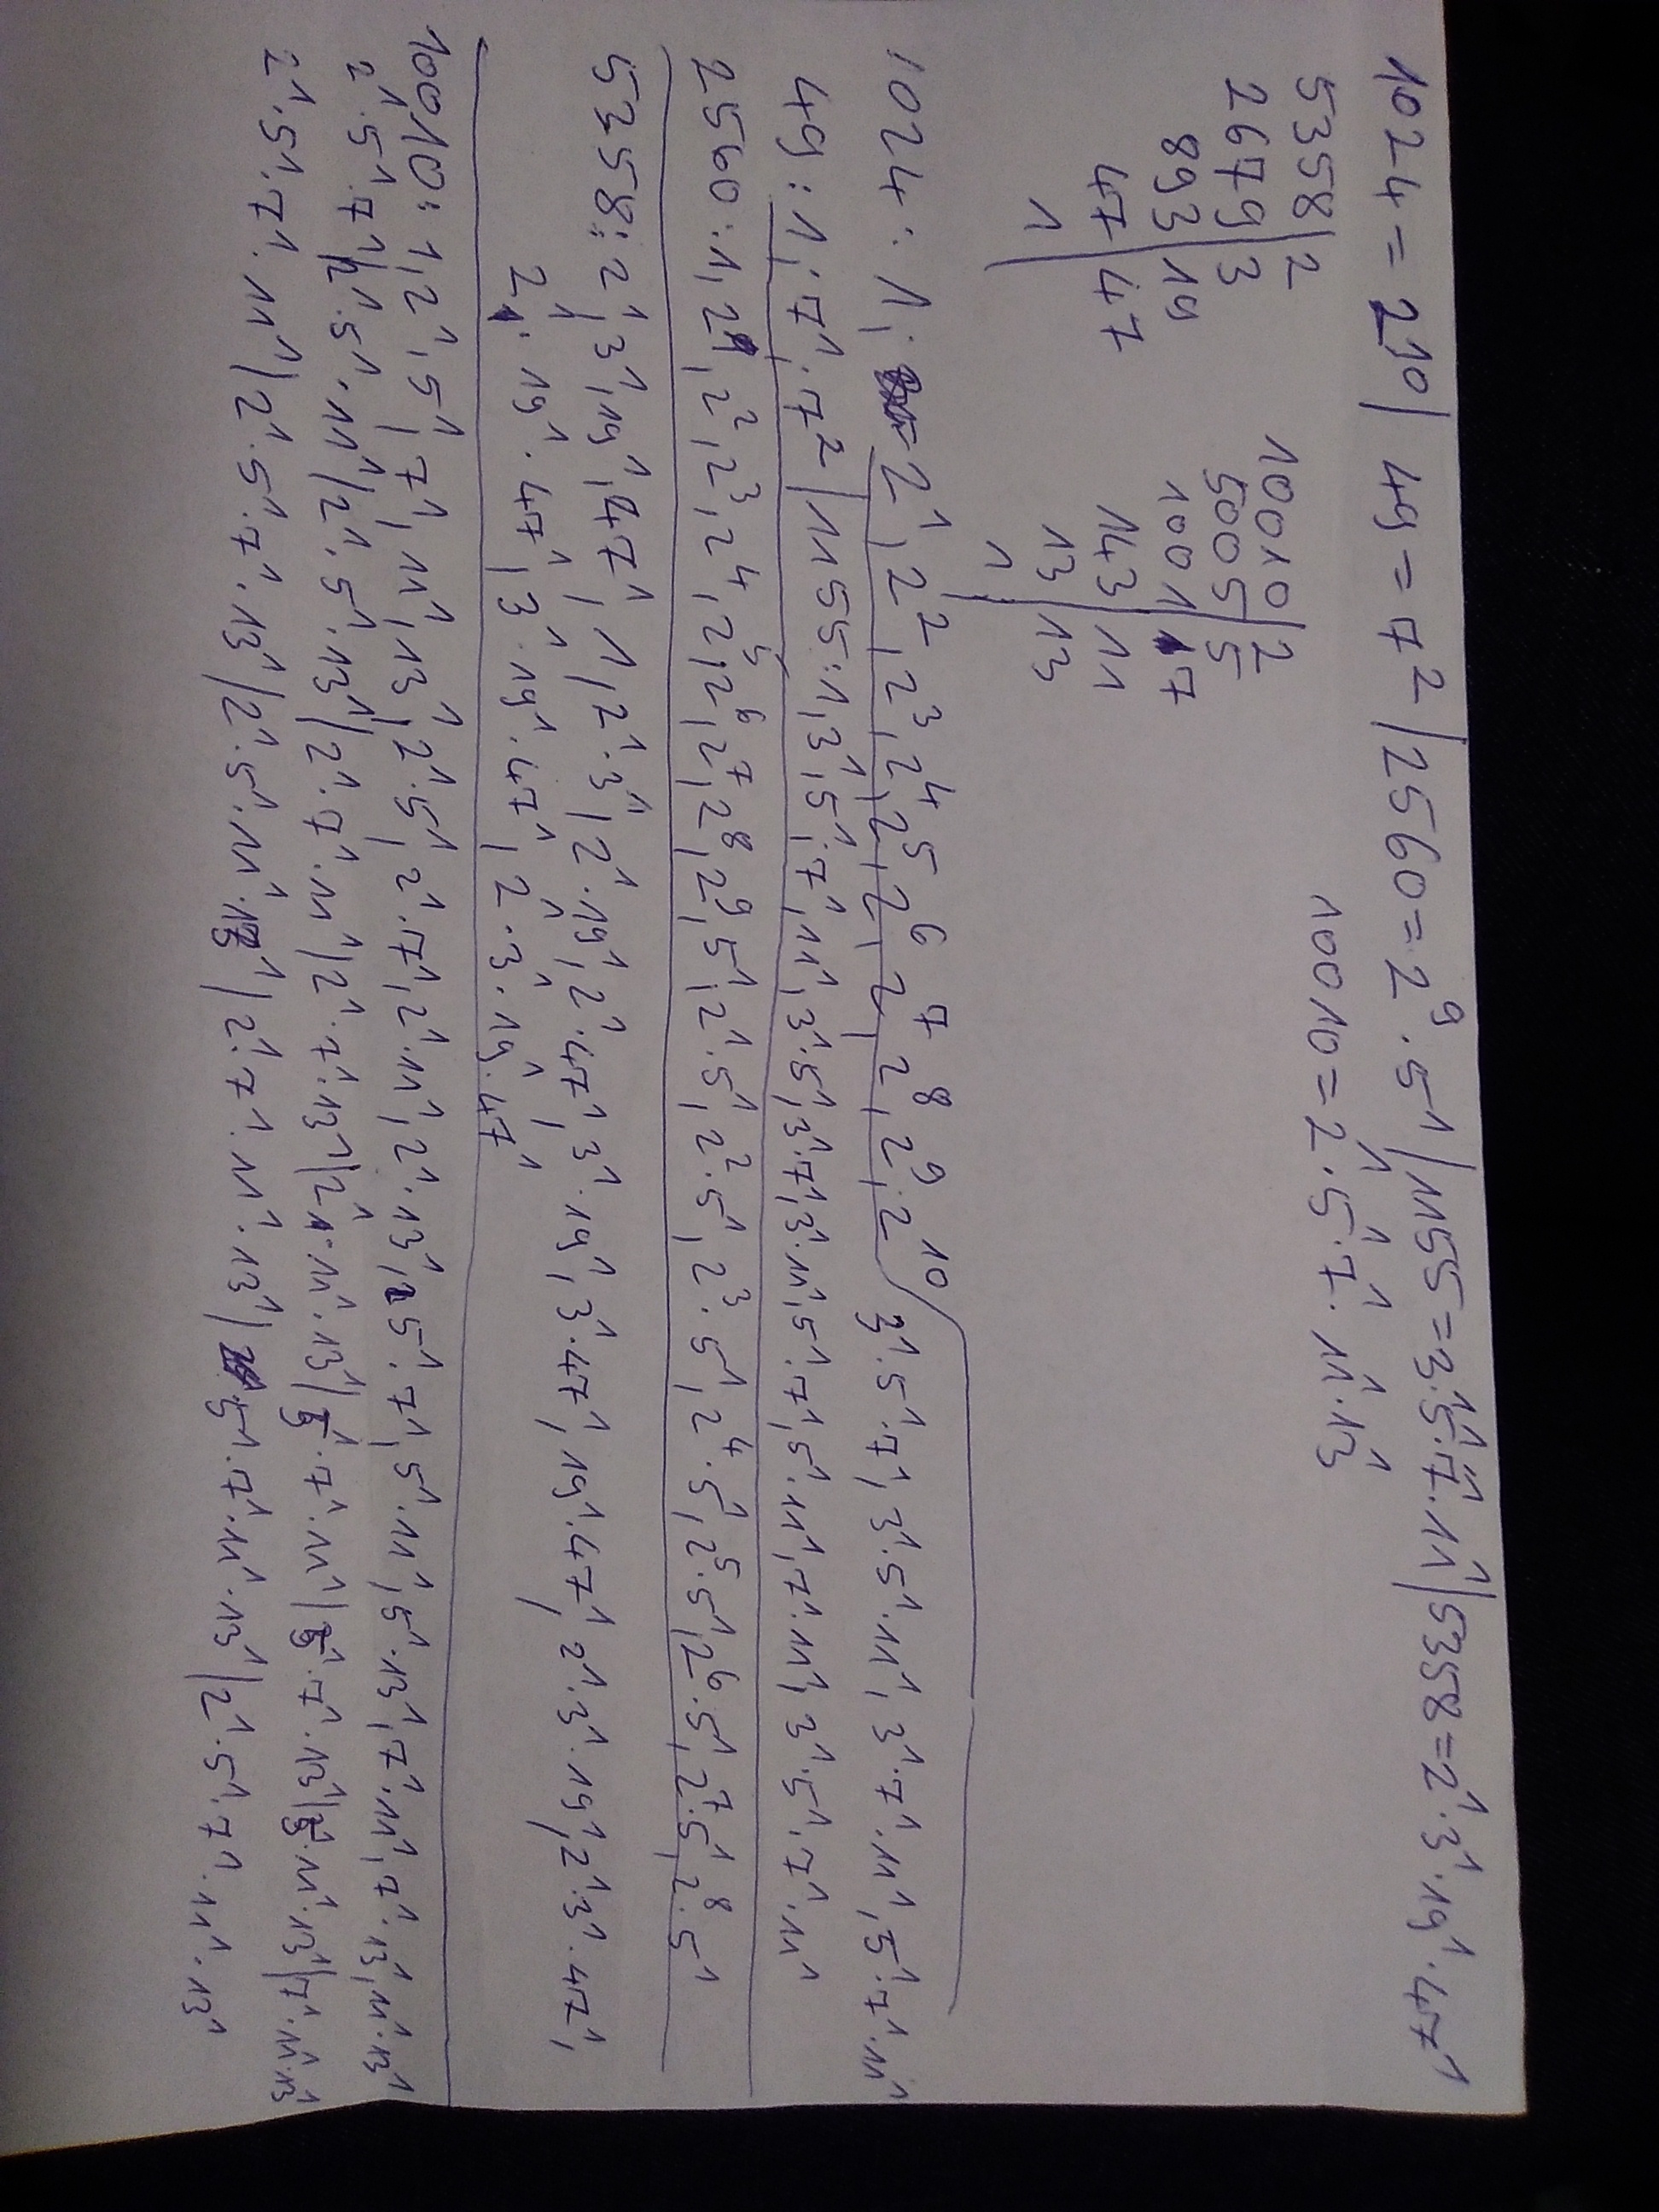 1024 = 2¹⁰ | 49 = 7² | 2560 = 2⁹ · 5¹ | 1155 = 3¹ · 5¹ · 7¹ · 11¹ | 5358 = 2¹ · 3¹ · 19¹ · 47¹
5358 | 2
2679 | 3
893 | 19
47 | 47
1 |
10010 | 2
5005 | 5
1001 | 7
143 | 11
13 | 13
1 |
10010 = 2¹ · 5¹ · 7¹ · 11¹ · 13¹
1024 : 1, 2¹, 2², 2³, 2⁴, 2⁵, 2⁶, 2⁷, 2⁸, 2⁹, 2¹⁰
49 : 1, 7¹, 7² | 1155 : 1, 3¹, 5¹, 7¹, 11¹, 3¹·5¹, 3¹·7¹, 3¹·11¹, 5¹·7¹, 5¹·11¹, 7¹·11¹, 3¹·5¹·7¹·11¹
3¹·5¹·7¹, 3¹·5¹·11¹, 3¹·7¹·11¹, 5¹·7¹·11¹
2560 : 1, 2¹, 2², 2³, 2⁴, 2⁵, 2⁶, 2⁷, 2⁸, 2⁹, 5¹, 2¹·5¹, 2²·5¹, 2³·5¹, 2⁴·5¹, 2⁵·5¹, 2⁶·5¹, 2⁷·5¹, 2⁸·5¹
5358 : 2¹, 3¹, 19¹, 47¹, 1, 2¹·3¹, 2¹·19¹, 2¹·47¹, 3¹·19¹, 3¹·47¹, 19¹·47¹, 2¹·3¹·19¹, 2¹·3¹·47¹,
2¹·19¹·47¹, 3¹·19¹·47¹, 2¹·3¹·19¹·47¹
10010 : 1, 2¹, 5¹, 7¹, 11¹, 13¹, 2¹·5¹, 2¹·7¹, 2¹·11¹, 2¹·13¹, 5¹·7¹, 5¹·11¹, 5¹·13¹, 7¹·11¹, 7¹·13¹, 11¹·13¹
2¹·5¹·7¹ | 2¹·5¹·11¹ | 2¹·5¹·13¹ | 2¹·7¹·11¹ | 2¹·7¹·13¹ | 2¹·11¹·13¹ | 5¹·7¹·11¹ | 5¹·7¹·13¹ | 5¹·11¹·13¹ | 7¹·11¹·13¹
2¹·5¹·7¹·11¹ | 2¹·5¹·7¹·13¹ | 2¹·5¹·11¹·13¹ | 2¹·7¹·11¹·13¹ | 5¹·7¹·11¹·13¹ | 2¹·5¹·7¹·11¹·13¹